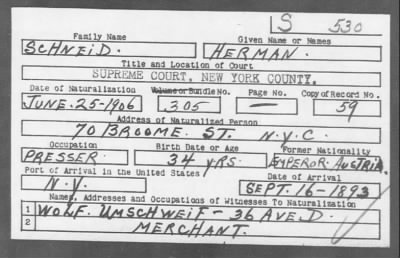 S 530
Family Name Given Name or Names
SCHNEID. HERMAN.
Title and Location of Court
SUPREME COURT, NEW YORK COUNTY.
Date of Naturalization Volume or Bundle No. Page No. Copy of Record No.
JUNE. 25-1906 305 — 59
Address of Naturalized Person
70 BROOME. ST. N.Y.C.
Occupation Birth Date or Age Former Nationality
PRESSER. 34 YRS. EMPEROR. AUSTRIA.
Port of Arrival in the United States Date of Arrival
N.Y. SEPT. 16-1893
Names, Addresses and Occupations of Witnesses To Naturalization
1 WOLF. UMSCHWEIF - 36 AVE. D.
2 MERCHANT.